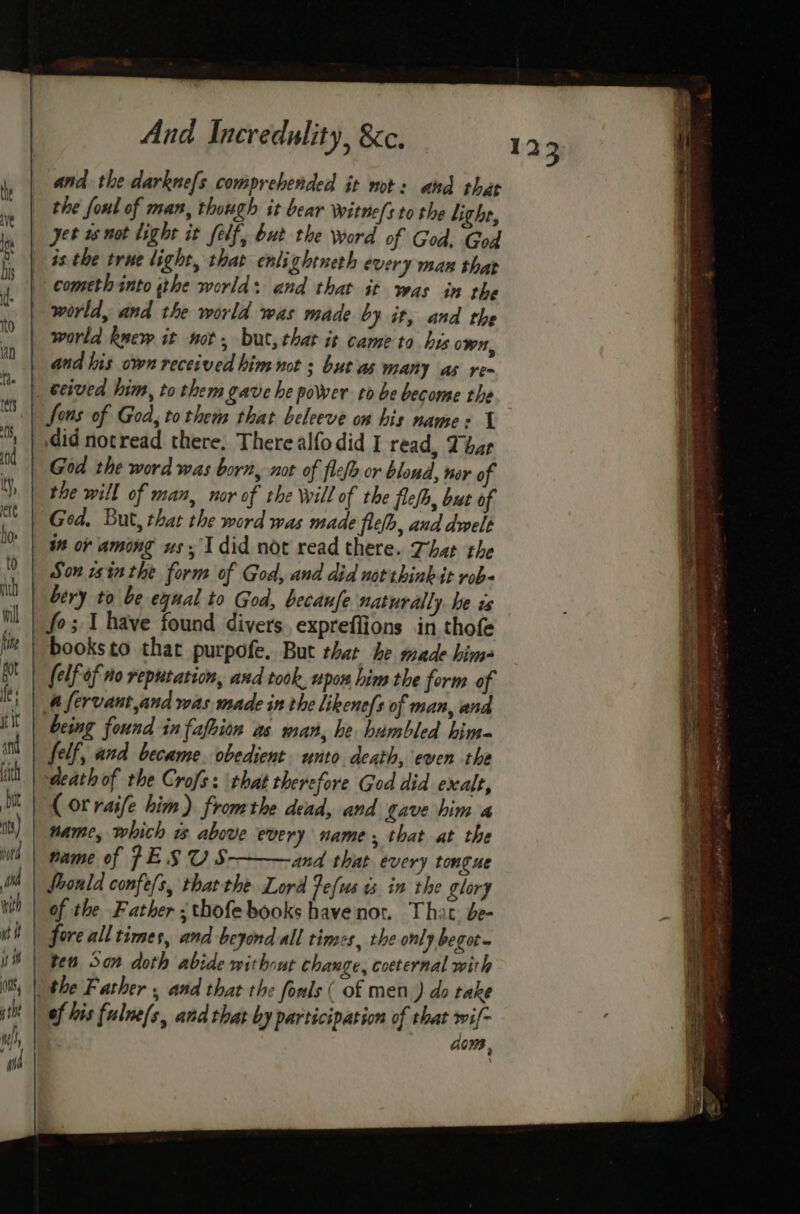 And Incredulity, &c. 123
and the darkneſs comprehended it not: and that
the ſoul of man, though it bear witneſs to the light,
yet is not light it ſelf, but the word of God, God
is the true light, that enlightneth every man that
cometh into the world: and that it was in the
world, and the world was made by it, and the
world knew it not; but, that it came to his own,
and his own received him not; but as many as re-
ceived him, to them gave he power to be become the
ſons of God, to them that beleeve on his name: I
did not read there. There alſo did I read, That
God the word was born, not of fleſh or bloud, nor of
the will of man, nor of the will of the fleſh, but of
God. But, that the word was made fleſh, and dwelt
in or among us, I did not read there. That the
Son is in the form of God, and did not think it rob-
bery to be equal to God, becauſe naturally he is
ſo; I have found divers expreſſions in thoſe
books to that purpoſe. But that he made him-
ſelf of no reputation, and took upon him the form of
a ſervant, and was made in the likeneſs of man, and
being found in faſhion as man, he humbled him-
ſelf, and became obedient unto death, even the
death of the Croſs: that therefore God did exalt,
(or raiſe him) from the dead, and gave him a
name, which is above every name, that at the
name of JESUS——and that every tongue
ſhould confeſs, that the Lord Jeſus is in the glory
of the Father; thoſe books have not. That, be-
fore all times, and beyond all times, the only begot-
ten Son doth abide without change, coeternal with
the Father, and that the ſouls (of men) do take
of his fulneſs, and that by participation of that wiſ-
dom,